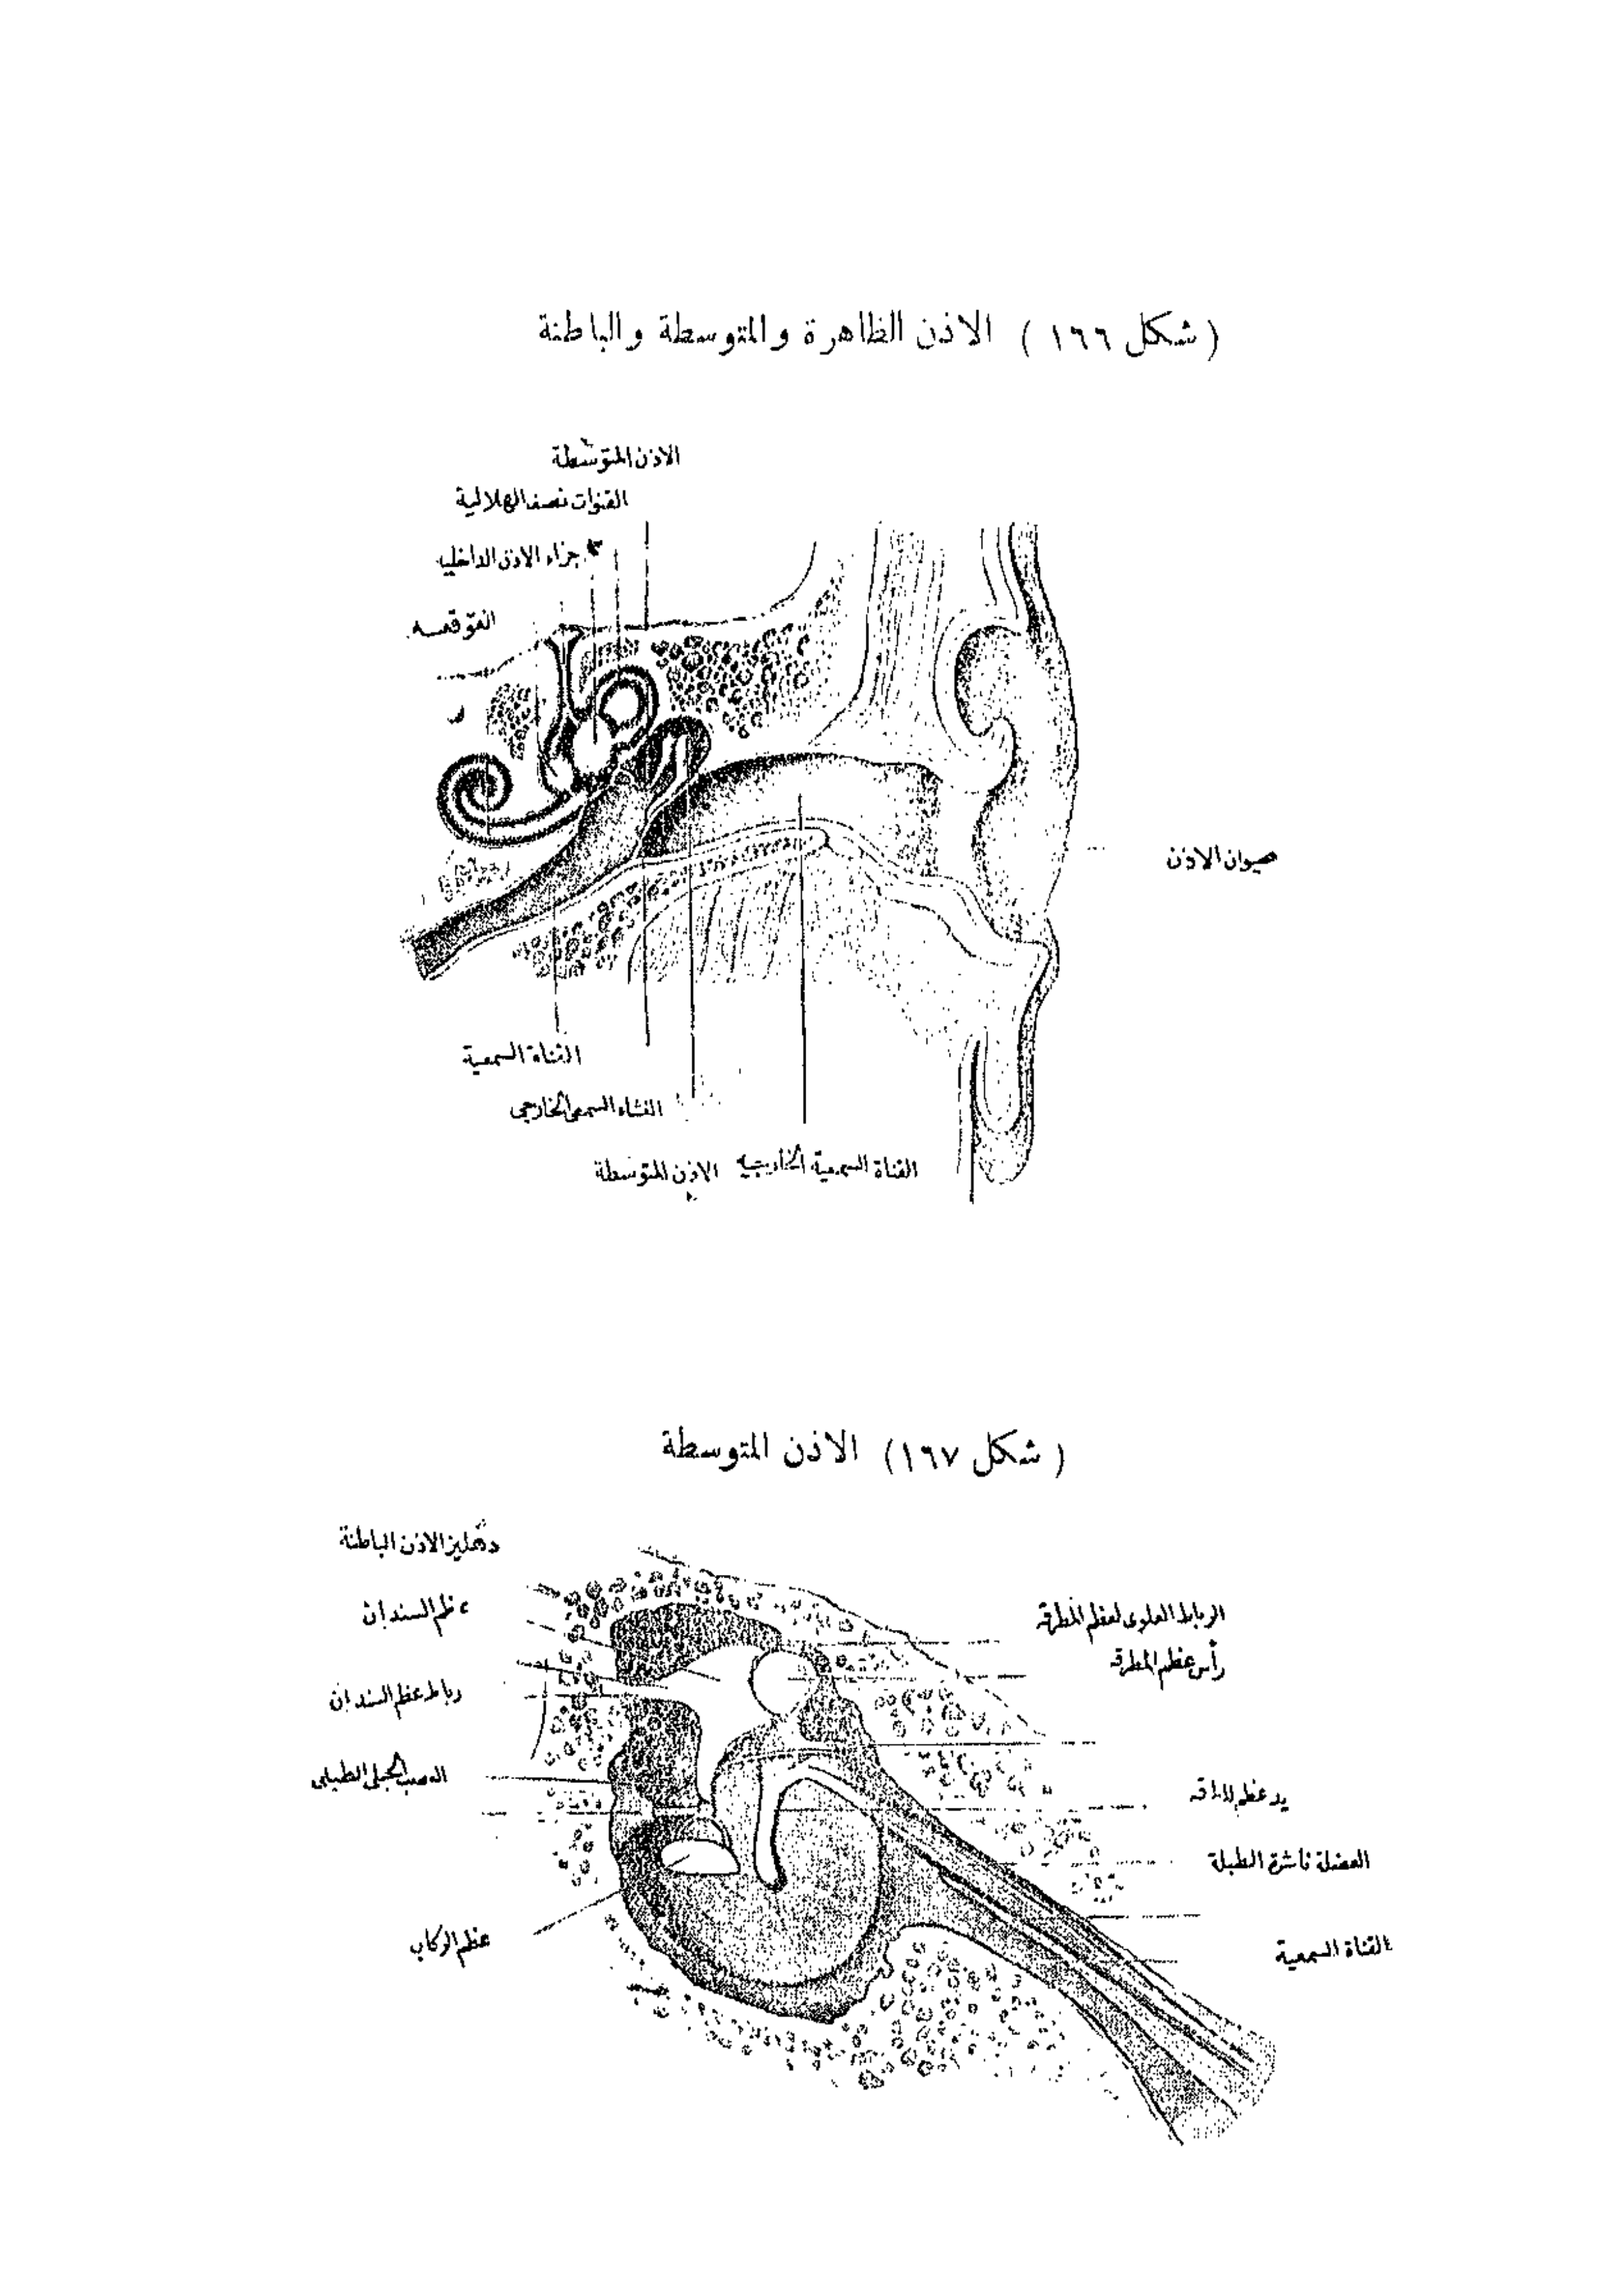 ( شكل ١٦٦ ) الاذن الظاهرة والمتوسطة والباطنة
الاذن المتوسطة
القنوات نصف الهلالية
جزاء الاذن الداخلية
القوقعة
صيوان الاذن
القناة السمعية
الغشاء السمعى الخارجي
القناة السمعية الخارجية
الاذن المتوسطة
( شكل ١٦٧ ) الاذن المتوسطة
دهليز الاذن الباطنة
عظم السندان
رباط عظم السندان
العصب الحبلى الطبلى
عظم الركاب
الرباط العلوى لعظم المطرقة
رأس عظم المطرقة
يد عظم
العضلة ناشرة الطبلة
القناة السمعية